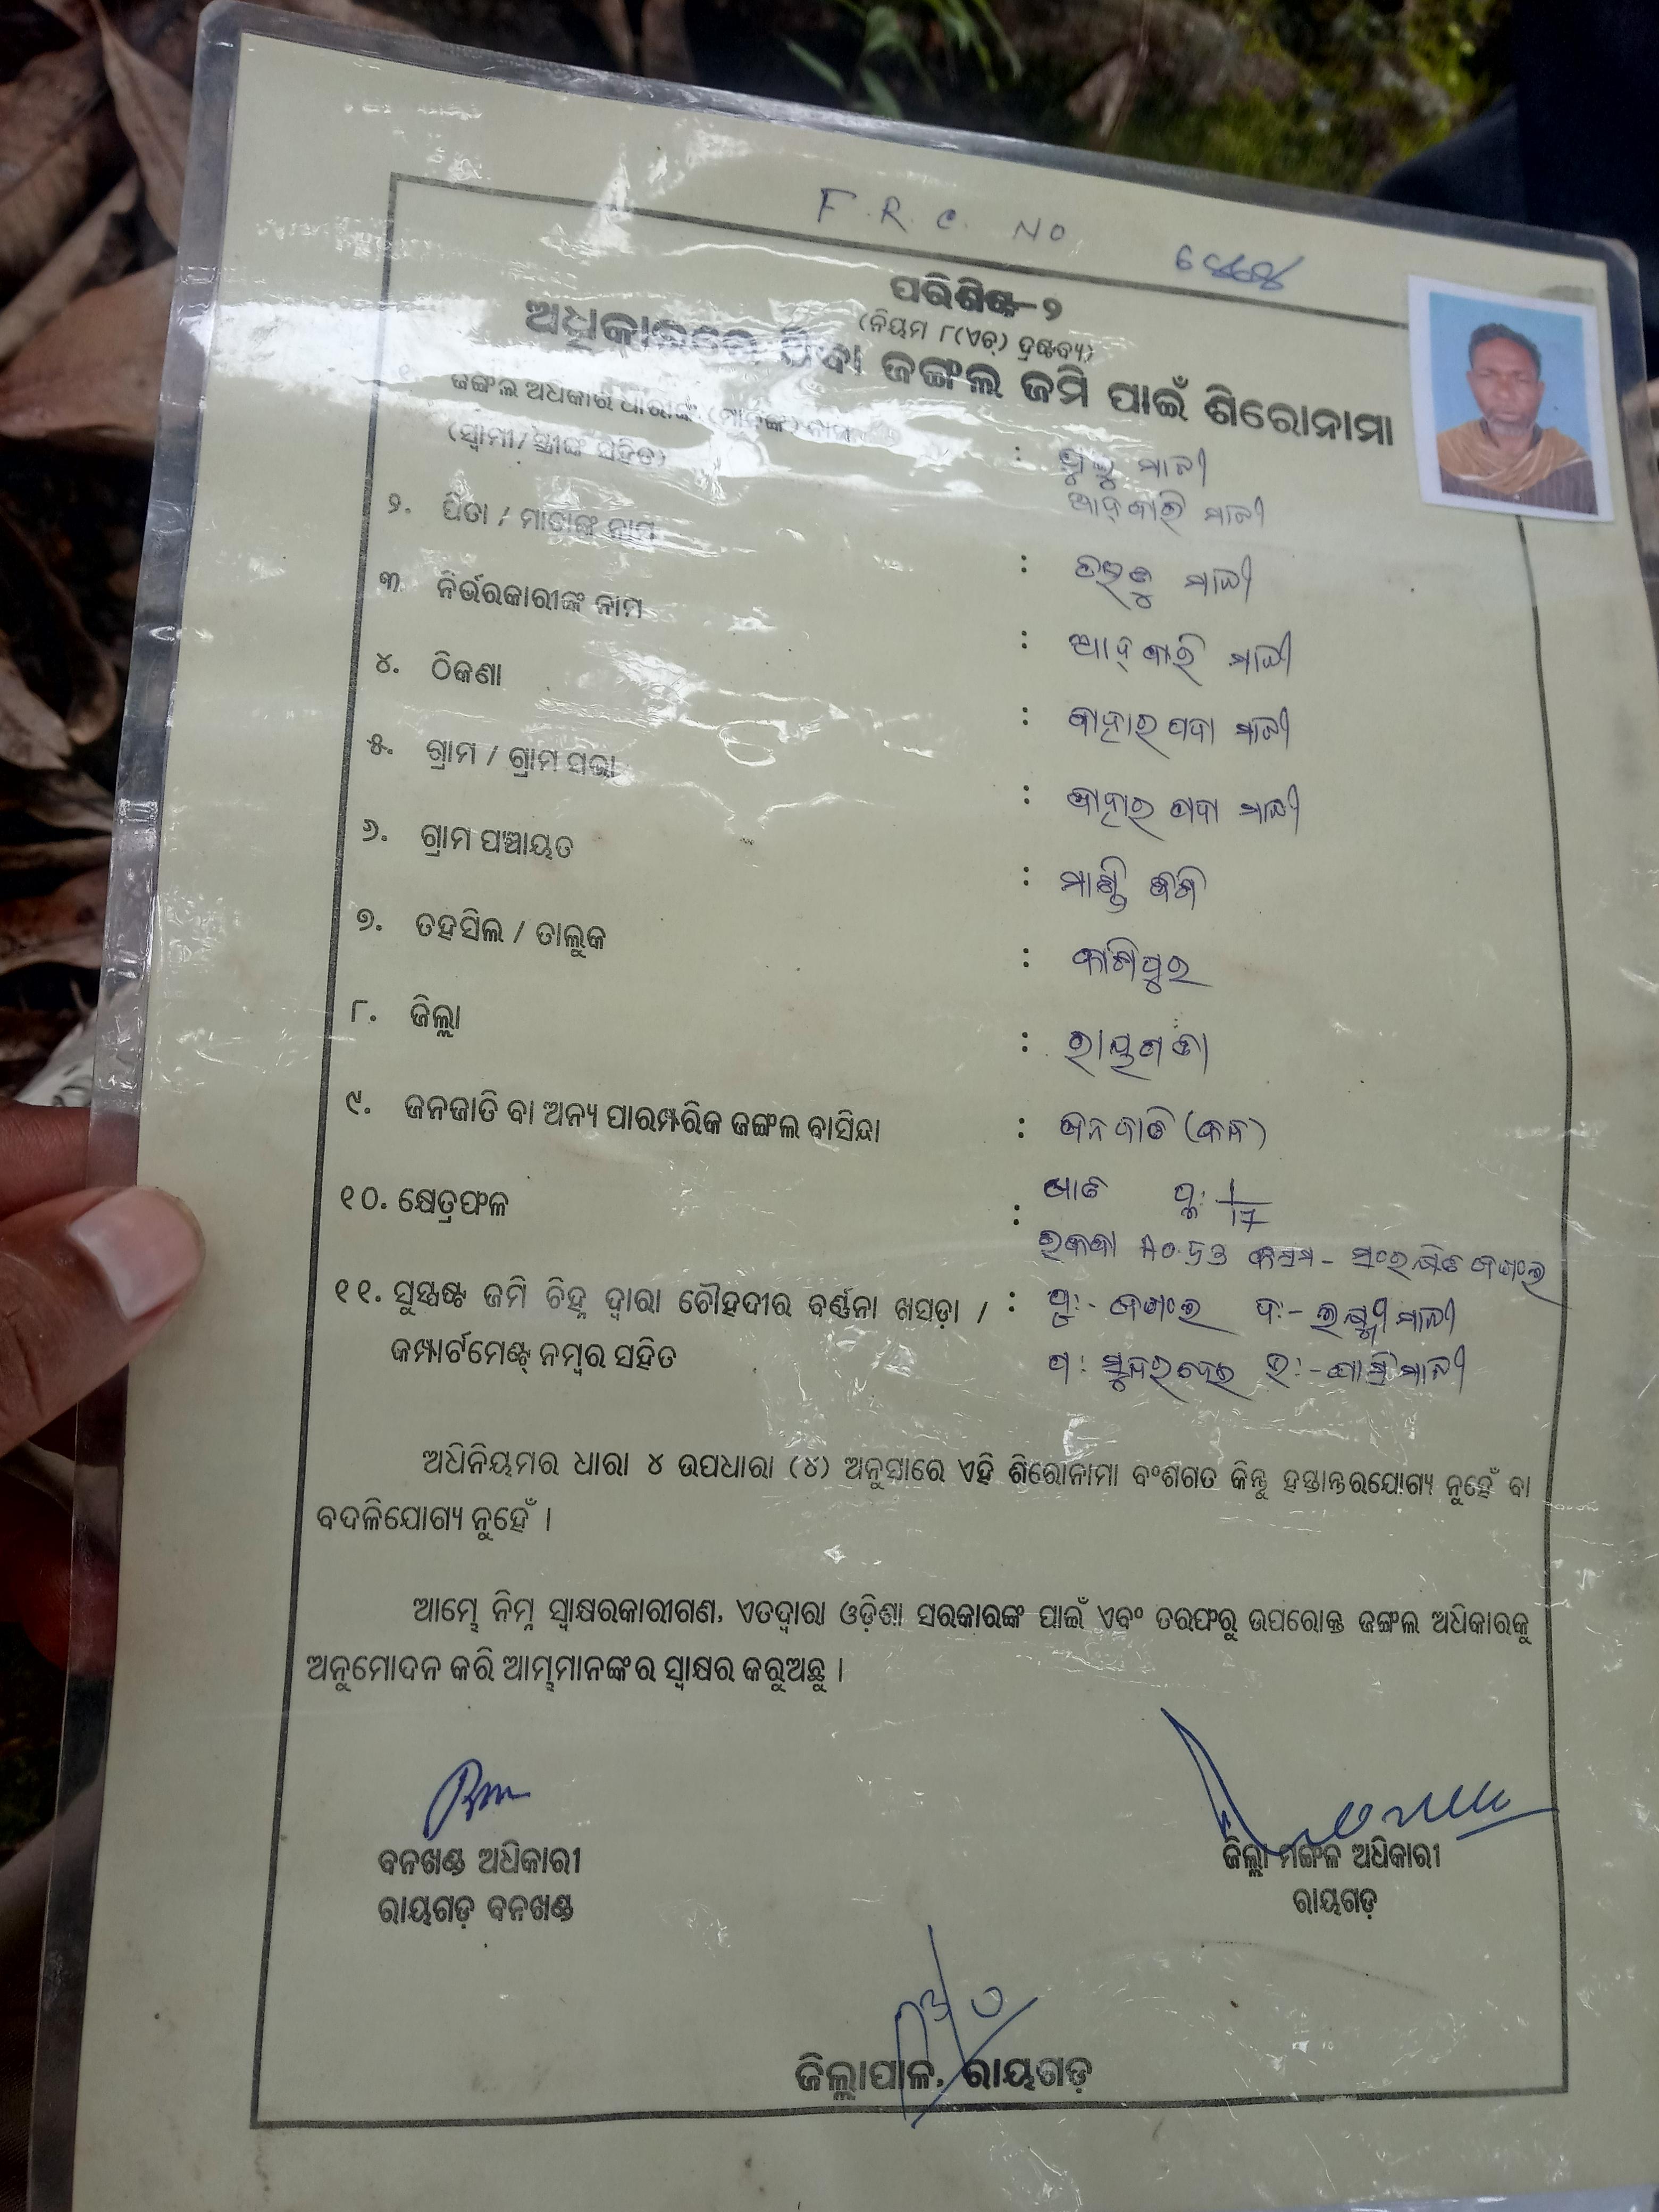 F. R. C. NO
ପରିଶିଷ୍ଟ-୨
(ନିୟମ ୮(ଏଚ୍) ଦ୍ରଷ୍ଟବ୍ୟ)
ଅଧିକାରରେ ଥିବା ଜଙ୍ଗଲ ଜମି ପାଇଁ ଶିରୋନାମା
୧. ଜଙ୍ଗଲ ଅଧିକାର ଧାରୀଙ୍କ (ମାନଙ୍କ) ନାମ
(ସ୍ୱାମୀ/ସ୍ତ୍ରୀଙ୍କ ସହିତ) : ମାଳୀ
ମାଳୀ
୨. ପିତା / ମାତାଙ୍କ ନାମ : ମାଳୀ
୩ ନିର୍ଭରକାରୀଙ୍କ ନାମ : ମାଳୀ
୪. ଠିକଣା : ମାଳୀ
୫. ଗ୍ରାମ / ଗ୍ରାମ ସଭା : ମାଳୀ
୬. ଗ୍ରାମ ପଞ୍ଚାୟତ :
୭. ତହସିଲ / ତାଲୁକ : କାଶିପୁର
୮. ଜିଲ୍ଲା : ରାୟଗଡା
୯. ଜନଜାତି ବା ଅନ୍ୟ ପାରମ୍ପରିକ ଜଙ୍ଗଲ ବାସିନ୍ଦା : ଜନଜାତି
୧୦. କ୍ଷେତ୍ରଫଳ : ପ୍ଲ: 1/17
ରକବା A0.53 କିସମ - ସଂରକ୍ଷିତ ଜଙ୍ଗଲ
୧୧. ସୁସ୍ପଷ୍ଟ ଜମି ଚିହ୍ନ ଦ୍ୱାରା ଚୌହଦୀର ବର୍ଣ୍ଣନା ଖସଡ଼ା / : ପୁ:- ଜଙ୍ଗଲ ଦ:- ମାଳୀ
କମ୍ପାର୍ଟମେଣ୍ଟ ନମ୍ବର ସହିତ ପ: ଉ:- ମାଳୀ
ଅଧିନିୟମର ଧାରା ୪ ଉପଧାରା (୪) ଅନୁସାରେ ଏହି ଶିରୋନାମା ବଂଶଗତ କିନ୍ତୁ ହସ୍ତାନ୍ତରଯୋଗ୍ୟ ନୁହେଁ ବା
ବଦଳିଯୋଗ୍ୟ ନୁହେଁ ।
ଆମ୍ଭେ ନିମ୍ନ ସ୍ୱାକ୍ଷରକାରୀଗଣ, ଏତଦ୍ୱାରା ଓଡ଼ିଶା ସରକାରଙ୍କ ପାଇଁ ଏବଂ ତରଫରୁ ଉପରୋକ୍ତ ଜଙ୍ଗଲ ଅଧିକାରକୁ
ଅନୁମୋଦନ କରି ଆମ୍ଭମାନଙ୍କର ସ୍ୱାକ୍ଷର କରୁଅଛୁ ।
ବନଖଣ୍ଡ ଅଧିକାରୀ
ରାୟଗଡ଼ ବନଖଣ୍ଡ
ଜିଲ୍ଲା ମଙ୍ଗଳ ଅଧିକାରୀ
ରାୟଗଡ଼
ଜିଲ୍ଲାପାଳ, ରାୟଗଡ଼